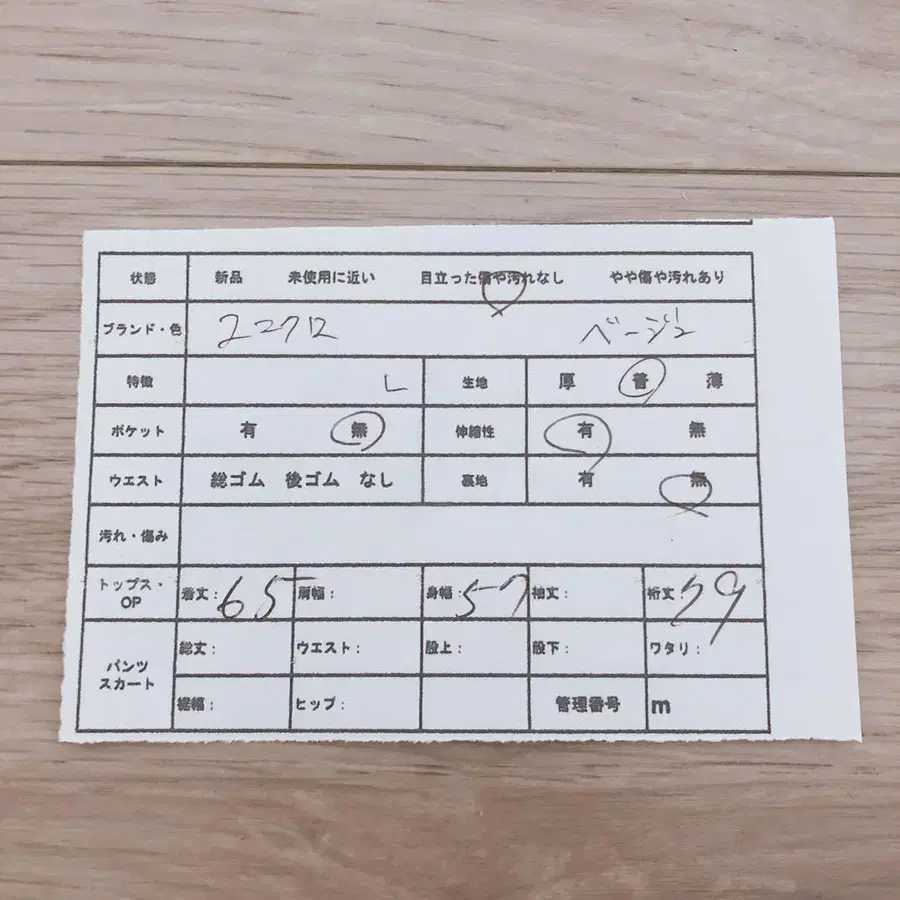 状態 新品 未使用に近い 目立った傷や汚れなし やや傷や汚れあり
ブランド・色 ユニクロ ベージュ
特徴 L 生地 厚 普 薄
ポケット 有 無 伸縮性 有 無
ウエスト 総ゴム 後ゴム なし 裏地 有 無
汚れ・傷み
トップス・
OP
着丈: 65 肩幅: 身幅: 57 袖丈: 裄丈: 79
パンツ
スカート
総丈: ウエスト: 股上: 股下: ワタリ:
裾幅: ヒップ: 管理番号 m